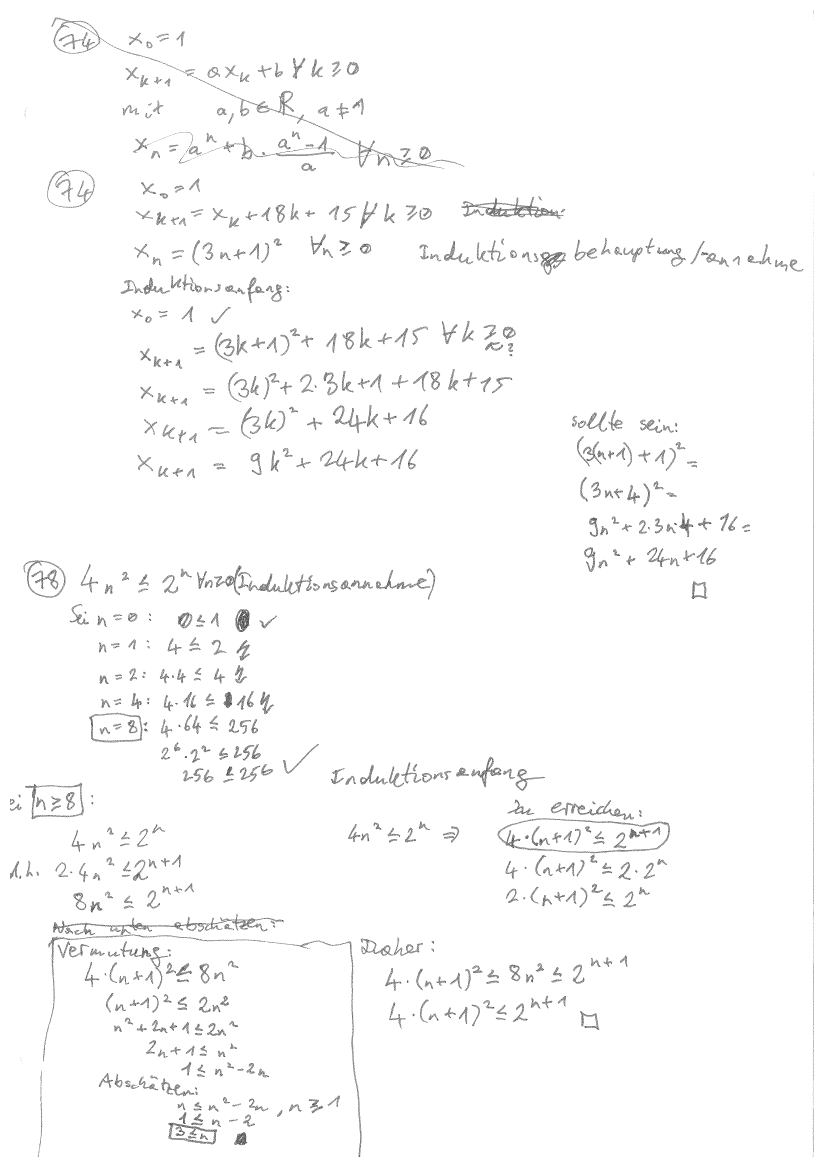 74 x₀ = 1
xₖ₊₁ = axₖ + b ∀k ≥ 0
mit a, b ∈ R, a ≠ 1
xₙ = aⁿ + b · (aⁿ - 1)/a ∀n ≥ 0
74 x₀ = 1
xₖ₊₁ = xₖ + 18k + 15 ∀k ≥ 0 Induktion:
xₙ = (3n+1)² ∀n ≥ 0 Induktions behauptung/-annahme
Induktionsanfang:
x₀ = 1 ✓
xₖ₊₁ = (3k+1)² + 18k + 15 ∀k ≥ 0
xₖ₊₁ = (3k)² + 2·3k + 1 + 18k + 15
xₖ₊₁ = (3k)² + 24k + 16
xₖ₊₁ = 9k² + 24k + 16
sollte sein:
(3(n+1)+1)² =
(3n+4)² =
9n² + 2·3n·4 + 16 =
9n² + 24n + 16
□
78 4n² ≤ 2ⁿ ∀n≥0 (Induktionsannahme)
Sei n = 0: 0 ≤ 1 ✓
n = 1: 4 ≤ 2 ↯
n = 2: 4·4 ≤ 4 ↯
n = 4: 4·16 ≤ 16 ↯
n = 8: 4·64 ≤ 256
2⁶·2² ≤ 256
256 ≤ 256 ✓ Induktionsanfang
ei n ≥ 8:
4n² ≤ 2ⁿ
d.h. 2·4n² ≤ 2ⁿ⁺¹
8n² ≤ 2ⁿ⁺¹
4n² ≤ 2ⁿ ⇒
Zu erreichen:
4·(n+1)² ≤ 2ⁿ⁺¹
4·(n+1)² ≤ 2·2ⁿ
2·(n+1)² ≤ 2ⁿ
Nach unten abschätzen:
Vermutung:
4·(n+1)² ≤ 8n²
(n+1)² ≤ 2n²
n² + 2n + 1 ≤ 2n²
2n + 1 ≤ n²
1 ≤ n² - 2n
Abschätzen:
n ≤ n² - 2n, n ≥ 1
1 ≤ n - 2
3 ≤ n
Daher:
4·(n+1)² ≤ 8n² ≤ 2ⁿ⁺¹
4·(n+1)² ≤ 2ⁿ⁺¹ □